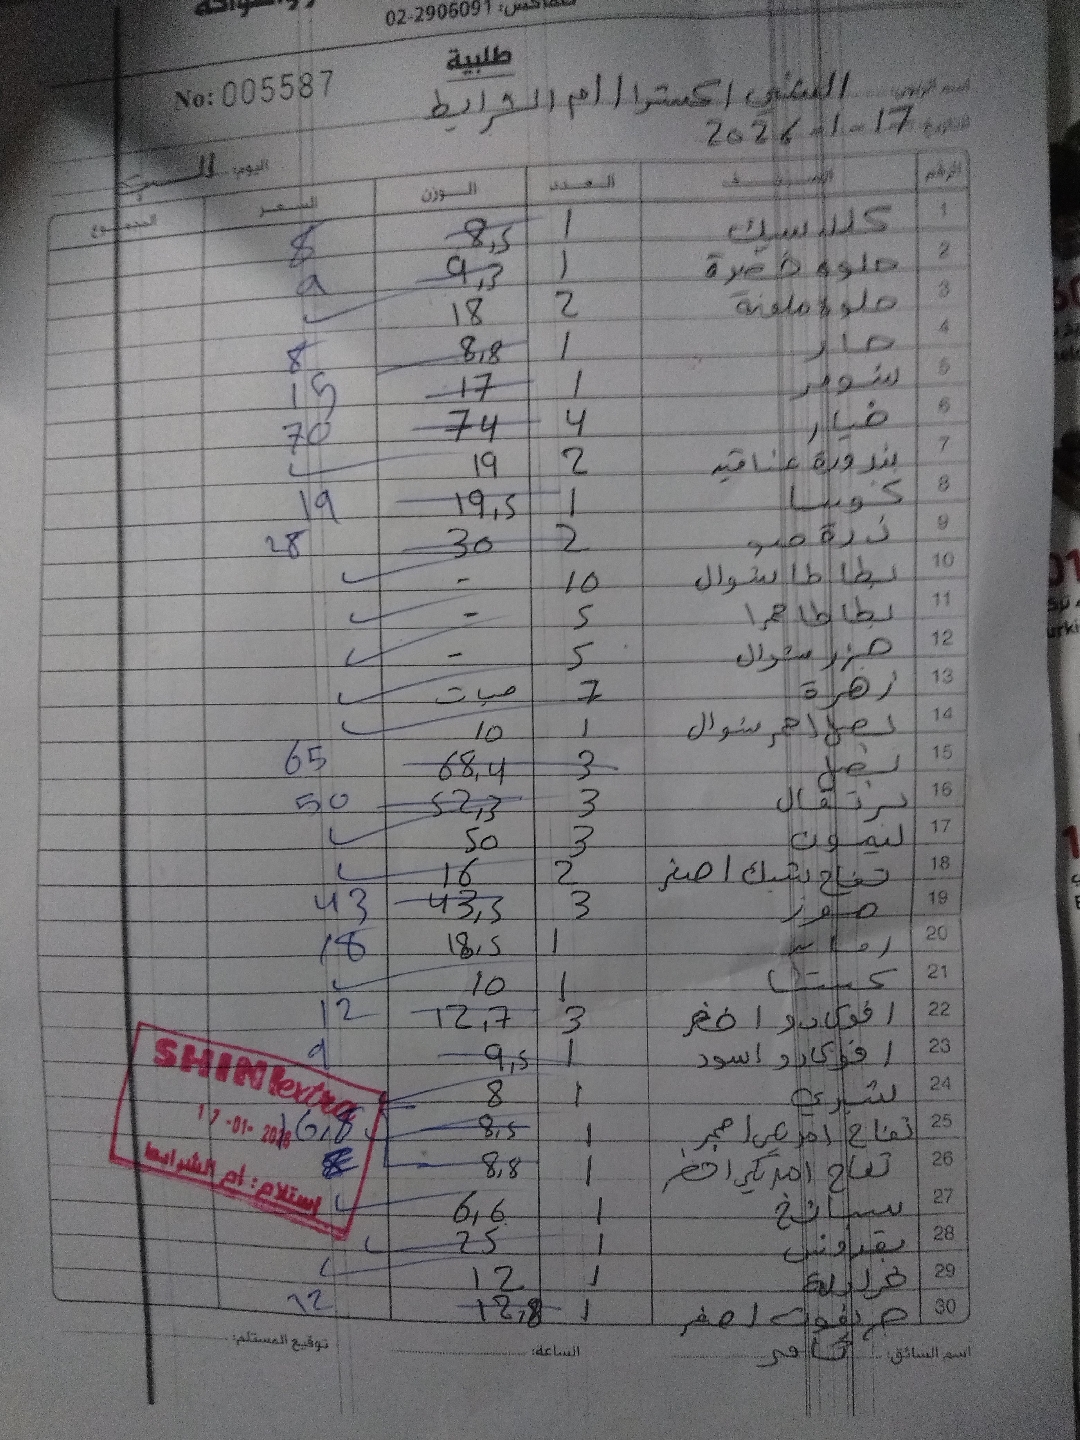 02-2906091
طلبية
No: 005587
الشني اكسترا / ام الشرايط
17-1-2026
اليوم: السبت
الرقم الصنف العدد الوزن السعر المجموع
1 كلاسيك 1 8,5 8
2 حلوه خضرة 1 9,3 9
3 حلوه ملونة 2 18
4 حار 1 8,8 8
5 شومر 1 17 15
6 خيار 4 74 70
7 بندورة عناقيد 2 19
8 كوسا 1 19,5 19
9 ذرة 2 30 28
10 بطاطا شوال 10 -
11 بطاطا حمرا 5 -
12 جزر شوال 5 -
13 زهرة 7 حبات
14 بصل احمر شوال 1 10
15 بصل 3 68,4 65
16 برتقال 3 52,3 50
17 ليمون 3 50
18 تفاح اصفر 2 16
19 موز 3 43,3 43
20 1 18,5 18
21 كستنا 1 10
22 افوكادو اخضر 3 12,7 12
23 افوكادو اسود 1 9,5 9
24 1 8
25 تفاح احمر 1 8,5 16,8
26 تفاح امريكي اخضر 1 8,8 8
27 سبانخ 1 6,6
28 بقدونس 1 25
29 1 12
30 جريفوت اصفر 1 12,8 12
SHINI extra
17-01-2026
إستلام: أم الشرايط
اسم السائق: الساعة: توقيع المستلم: